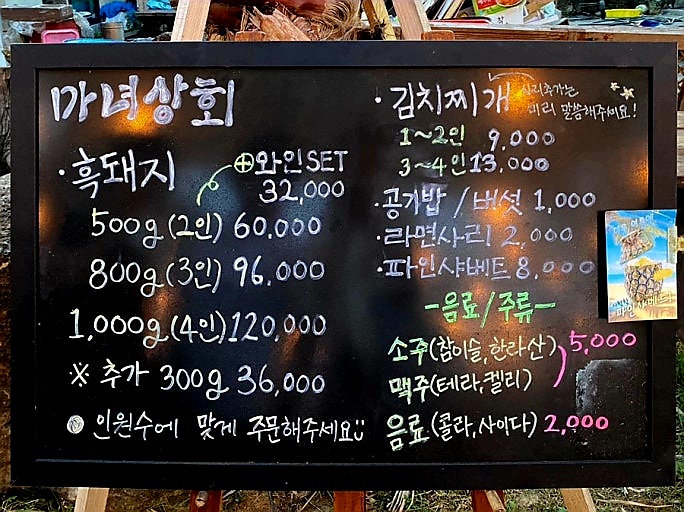 마녀상회
·흑돼지
⊕와인SET
32,000
500g (2인) 60,000
800g (3인) 96,000
1,000g (4인) 120,000
※ 추가 300g 36,000
인원수에 맞게 주문해주세요
·김치찌개
사리추가는
미리 말씀해주세요!
1~2인 9,000
3~4인 13,000
·공기밥 / 버섯 1,000
·라면사리 2,000
·파인샤베트 8,000
-음료/주류-
소주(참이슬,한라산)
맥주(테라,켈리)
5,000
음료(콜라,사이다) 2,000
파인샤베트